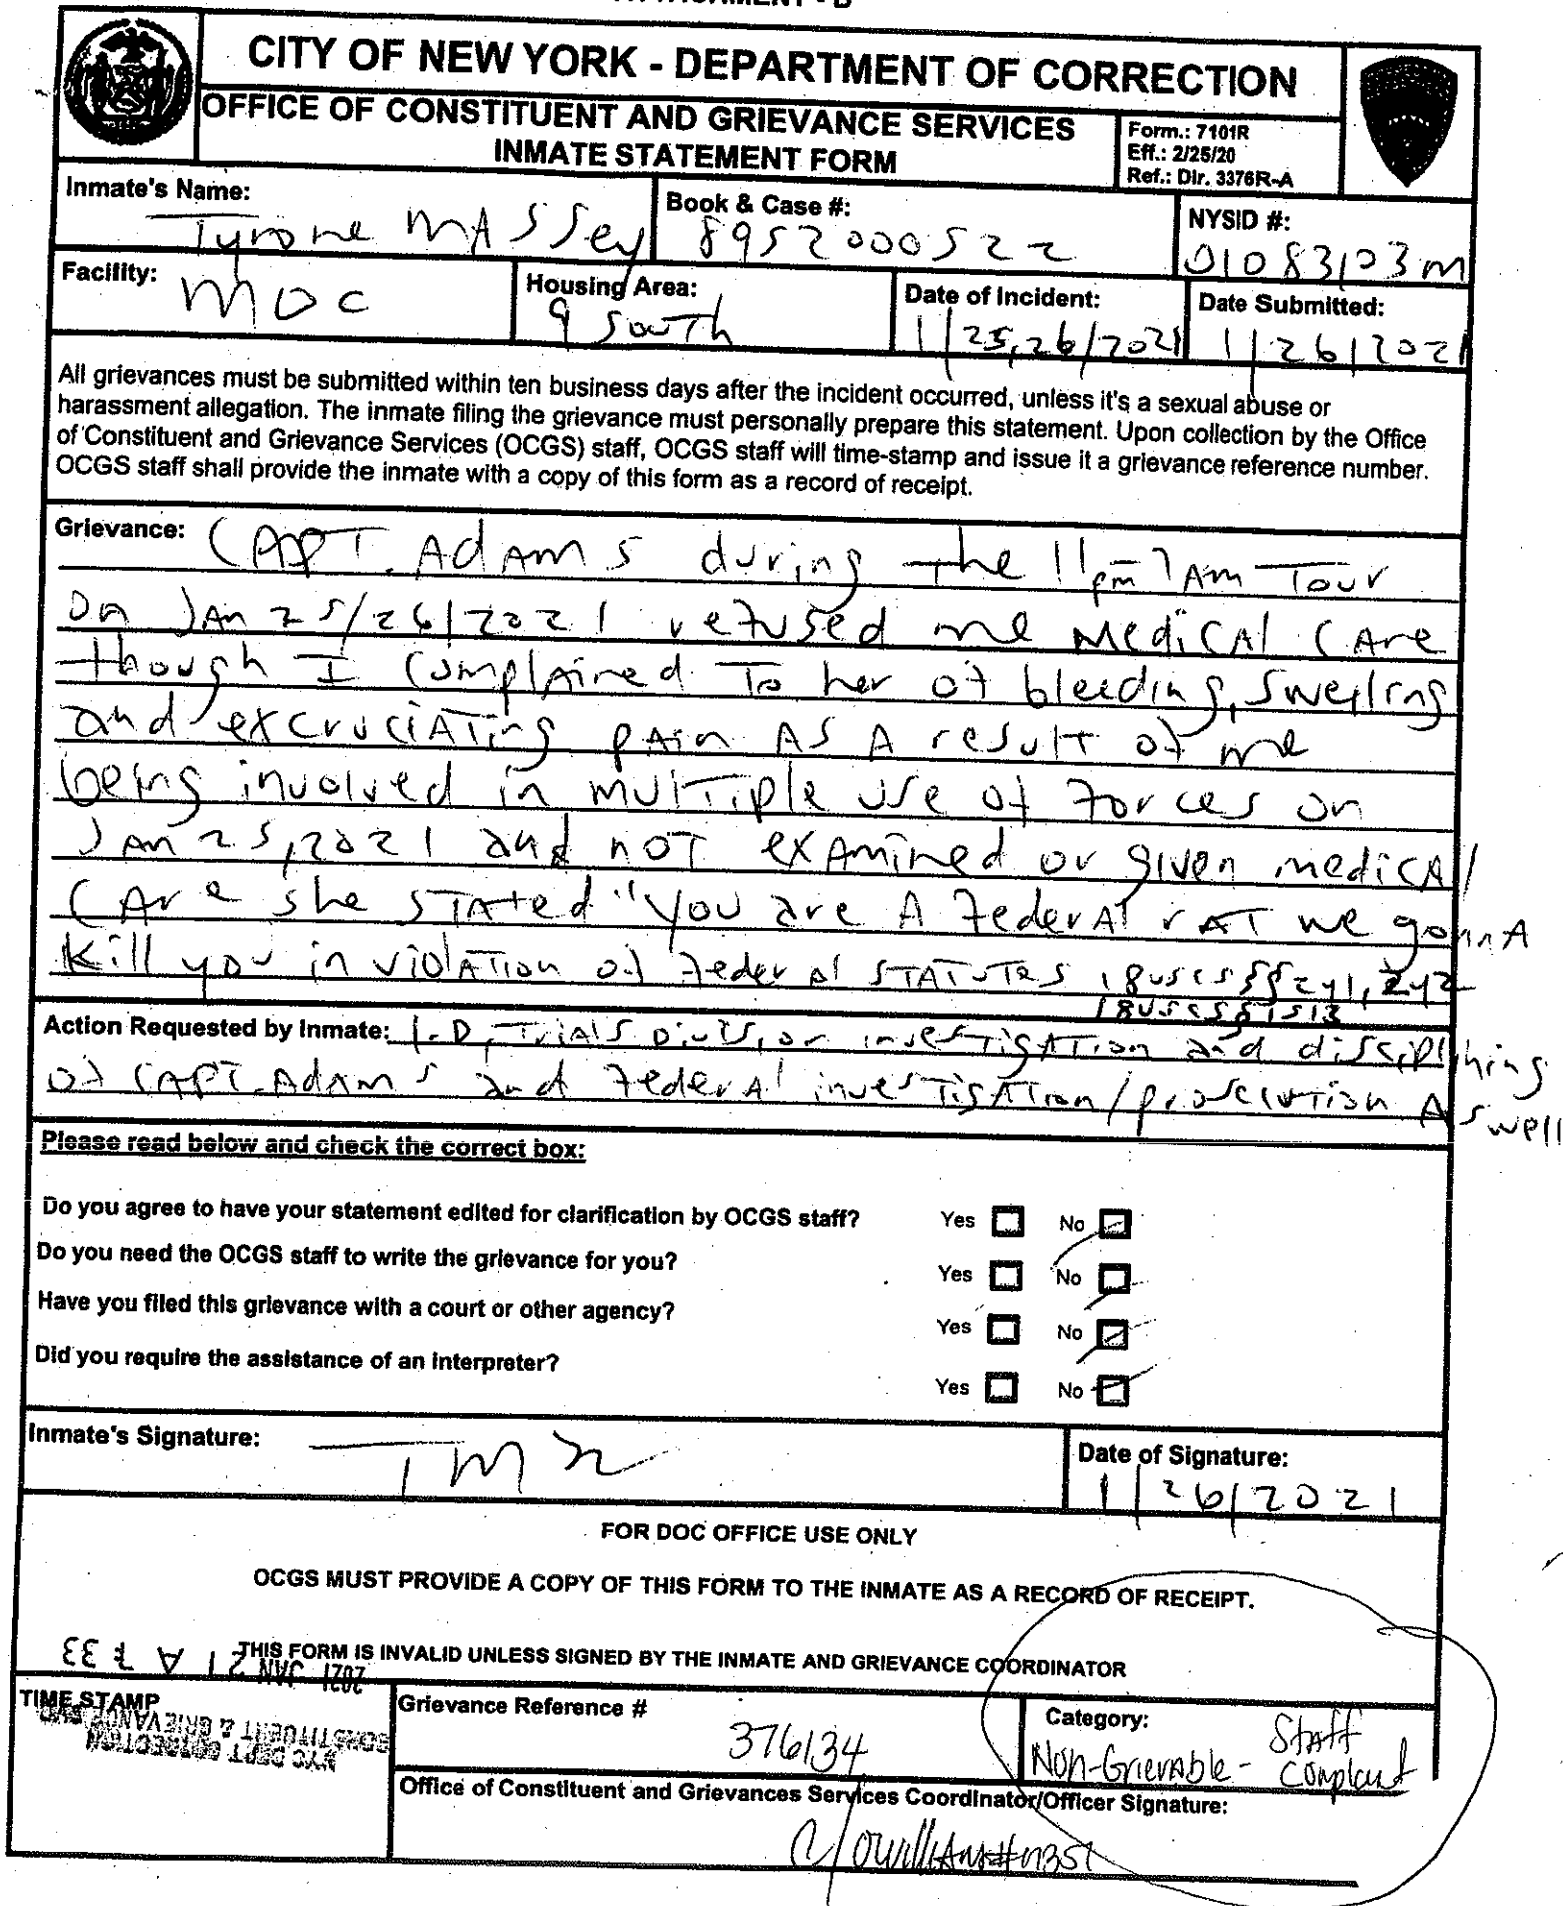 CITY OF NEW YORK - DEPARTMENT OF CORRECTION
OFFICE OF CONSTITUENT AND GRIEVANCE SERVICES
INMATE STATEMENT FORM
Form.: 7101R
Eff.: 2/25/20
Ref.: Dir. 3376R-A
Inmate's Name:
Tyrone MASSey
Book & Case #:
8952000522
NYSID #:
01083103m
Facility:
MDC
Housing Area:
9 South
Date of Incident:
1/25,26/2021
Date Submitted:
1/26/2021
All grievances must be submitted within ten business days after the incident occurred, unless it's a sexual abuse or
harassment allegation. The inmate filing the grievance must personally prepare this statement. Upon collection by the Office
of Constituent and Grievance Services (OCGS) staff, OCGS staff will time-stamp and issue it a grievance reference number.
OCGS staff shall provide the inmate with a copy of this form as a record of receipt.
Grievance: CAPT. Adams during the 11pm-7Am Tour
on Jan 25/26/2021 refused me Medical Care
though I complained to her of bleeding, swelling
and excruciating pain As A result of me
being involved in multiple use of forces on
Jan 25, 2021 and not examined or given medical
Care she stated "you are A federal rat we gonna
Kill you in violation of federal statutes 18uscs§§241,242
18uscs§1513
Action Requested by Inmate: I.D, Trials Division investigation and disciplining
of CAPT. Adams and federal investigation/prosecution As well
Please read below and check the correct box:
Do you agree to have your statement edited for clarification by OCGS staff? Yes No
Do you need the OCGS staff to write the grievance for you? Yes No
Have you filed this grievance with a court or other agency? Yes No
Did you require the assistance of an interpreter? Yes No
Inmate's Signature:
TM
Date of Signature:
1/26/2021
FOR DOC OFFICE USE ONLY
OCGS MUST PROVIDE A COPY OF THIS FORM TO THE INMATE AS A RECORD OF RECEIPT.
THIS FORM IS INVALID UNLESS SIGNED BY THE INMATE AND GRIEVANCE COORDINATOR
2021 JAN 27 A 7 33
TIME STAMP
NYC DEPT CORRECTION
CONSTITUENT & GRIEVANCE
Grievance Reference #
376134
Category:
Non-Grievable - Staff Complaint
Office of Constituent and Grievances Services Coordinator/Officer Signature:
C/O Williams #